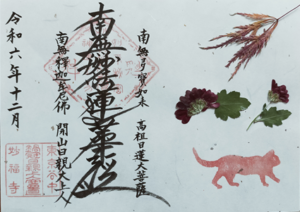 南無多宝如来
高祖日蓮大菩薩
南無妙法蓮華経
南無釈迦牟尼佛
開山日親大上人
令和六年十二月
東京谷中
妙福寺